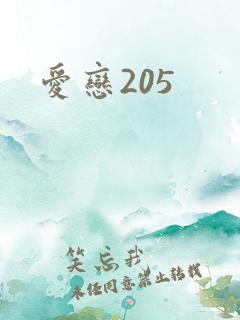 愛戀205
笑忘我
未经同意禁止转载